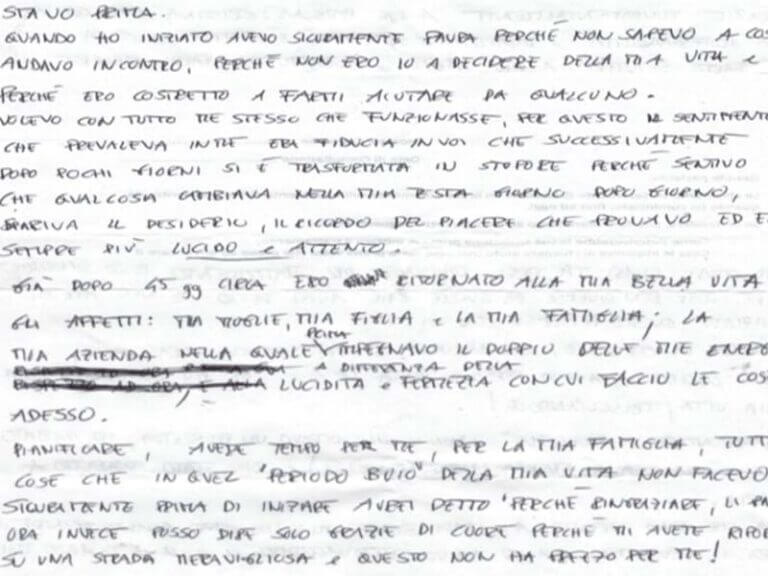 STAVO PRIMA.
QUANDO HO INIZIATO AVEVO SICURAMENTE PAURA PERCHÉ NON SAPEVO A COS
ANDAVO INCONTRO, PERCHÉ NON ERO IO A DECIDERE DELLA MIA VITA E
PERCHÉ ERO COSTRETTO A FARMI AIUTARE DA QUALCUNO.
VOLEVO CON TUTTO ME STESSO CHE FUNZIONASSE, PER QUESTO IL SENTIMENTO
CHE PREVALEVA IN ME ERA FIDUCIA IN VOI CHE SUCCESSIVAMENTE
DOPO POCHI GIORNI SI È TRASFORMATA IN STUPORE PERCHÉ SENTIVO
CHE QUALCOSA CAMBIAVA NELLA MIA TESTA GIORNO DOPO GIORNO,
SPARIVA IL DESIDERIO, IL RICORDO DEL PIACERE CHE PROVAVO ED E
SEMPRE PIÙ LUCIDO E ATTENTO.
GIÀ DOPO 45 gg CIRCA ERO RITORNATO ALLA MIA BELLA VITA
GLI AFFETTI: MIA MOGLIE, MIA FIGLIA E LA MIA FAMIGLIA; LA
MIA AZIENDA NELLA QUALE PRIMA IMPEGNAVO IL DOPPIO DELLE MIE ENERG
A DIFFERENZA DELLA
LUCIDITÀ E FERMEZZA CON CUI FACCIO LE COS
ADESSO.
PIANIFICARE, AVERE TEMPO PER ME, PER LA MIA FAMIGLIA, TUTT
COSE CHE IN QUEL "PERIODO BUIO" DELLA MIA VITA NON FACEVO
SICURAMENTE PRIMA DI INIZIARE AVREI DETTO "PERCHÉ RINGRAZIARE, LI PA
ORA INVECE POSSO DIRE SOLO GRAZIE DI CUORE PERCHÉ MI AVETE RIPOR
SU UNA STRADA MERAVIGLIOSA E QUESTO NON HA PREZZO PER ME!